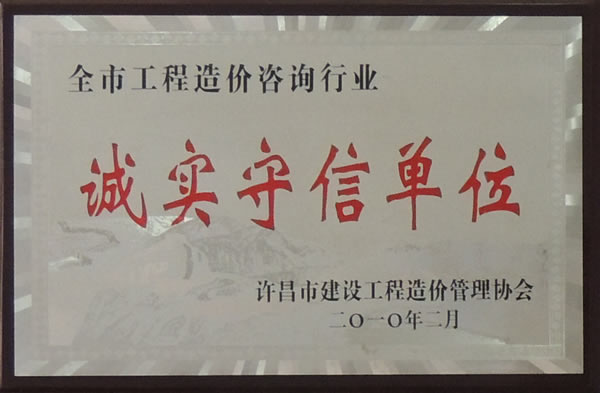 全市工程造价咨询行业
诚实守信单位
许昌市建设工程造价管理协会
二〇一〇年二月